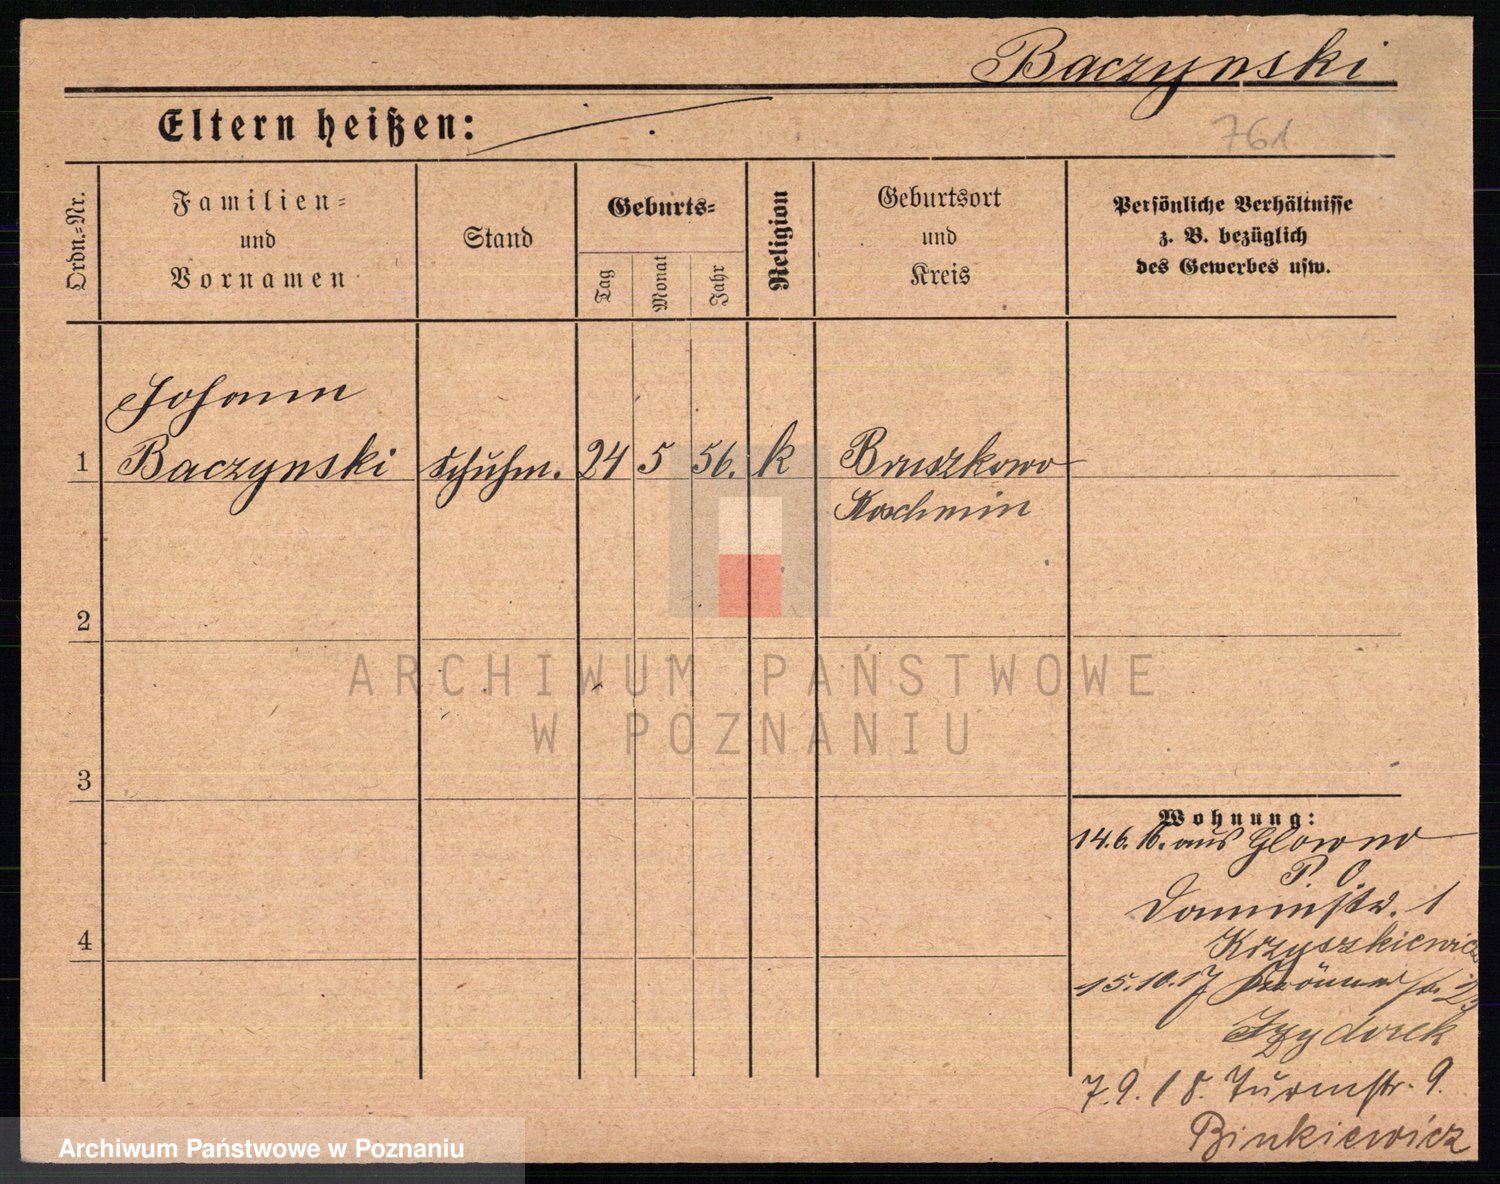 Baczynski
Eltern heißen:
761
Ordn.-Nr.
Familien-
und
Vornamen
Stand
Geburts-
Tag
Monat
Jahr
Religion
Geburtsort
und
Kreis
Persönliche Verhältnisse
z. B. bezüglich
des Gewerbes usw.
Johann
1 Baczynski Schuhm. 24 5 56. k Bruszkowo
Koschmin
2
3
4
Wohnung:
14.6.16. aus Glowno
P. O.
1
Krzyszkiewicz
15.10.17
Izydorek
7.9.18. Turmstr. 9.
Binkiewicz
ARCHIWUM PAŃSTWOWE
W POZNANIU
Archiwum Państwowe w Poznaniu